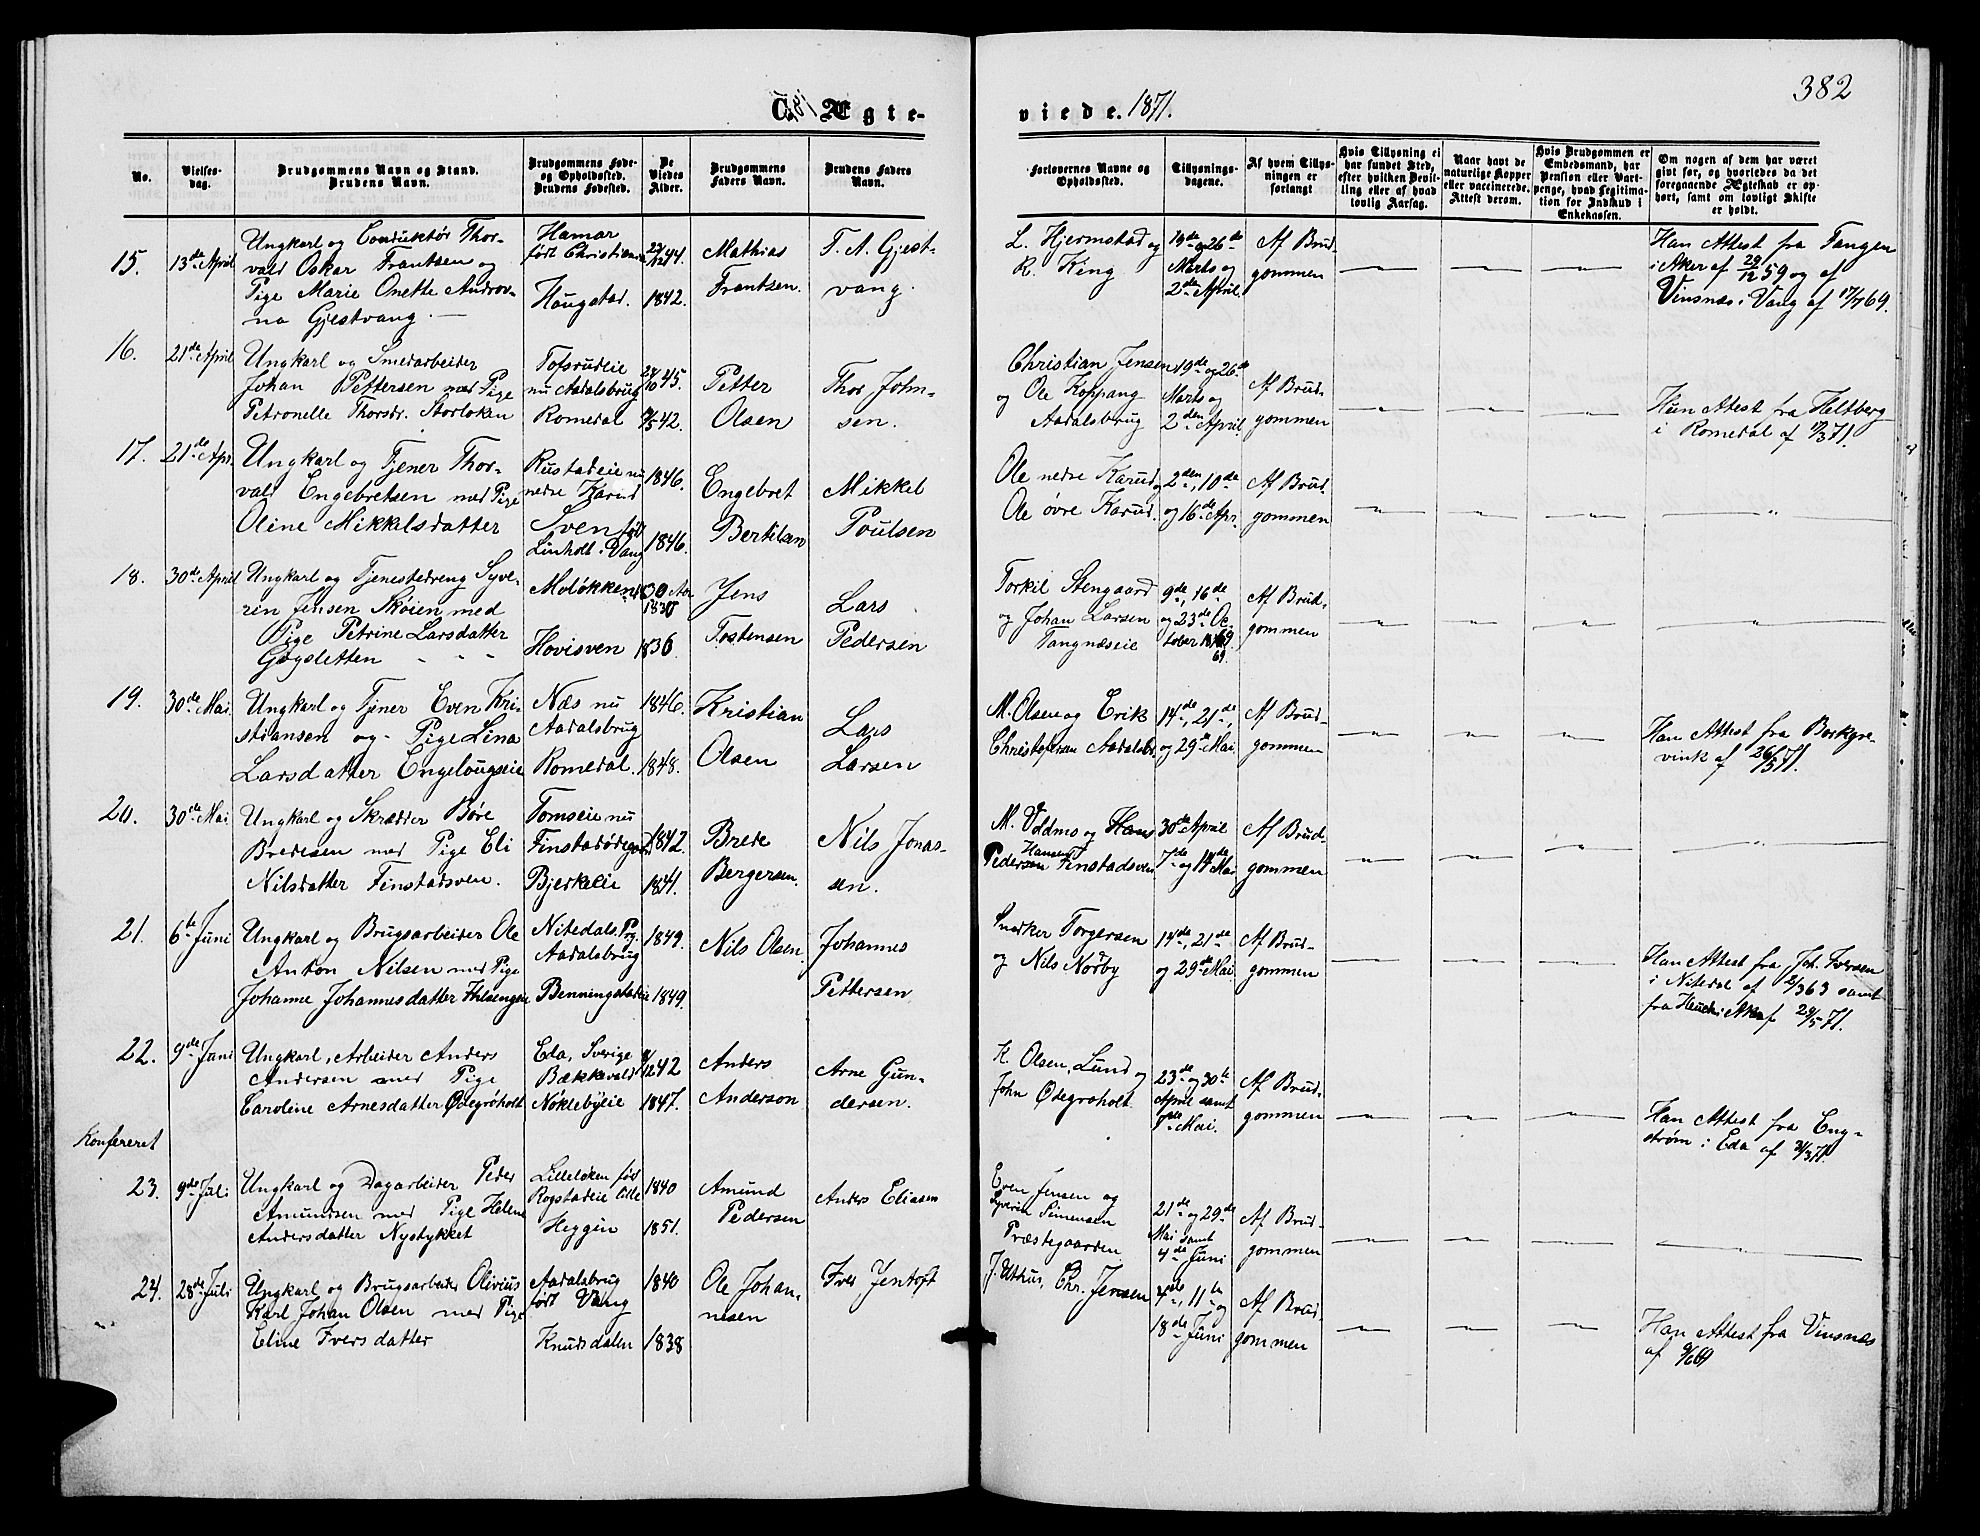 382
C. Ægte-
viede. 1871.
No.
Vielses-
dag.
Brudgommens Navn og Stand.
Brudens Navn.
Brudgommens Føde-
og Opholdssted.
Brudens Fødested.
De
Viedes
Alder.
Brudgommens
Faders Navn.
Brudens Faders
Navn.
Forlovernes Navne og
Opholdssted.
Tillysnings-
dagene.
Af hvem Tillys-
ningen er
forlangt
Hvis Tillysning ei
har fundet Sted,
efter hvilken Bevil-
ling eller af hvad
lovlig Aarsag.
Naar havt de
naturlige Kopper
eller vaccinerede.
Attest derom.
Hvis Brudgommen er
Embedsmand, har
Pension eller Vart-
penge, hvad Legitima-
tion for Indskud i
Enkekassen.
Om nogen af dem har været
givt før, og hvorledes da det
foregaaende Ægteskab er op-
hørt, samt om lovligt Skifte
er holdt.
15.
13de April
Ungkarl og Conduktør Thor-
vald Oskar Frantsen og
Pige Marie Onette Androv-
na Gjestvang.
Hamar
født Christiania
Haugstad.
44.
1842.
Mathias
Frantsen.
T. A. Gjest-
vang.
L. Hjermstad og
R. King
19de og 26de
Marts og
2de April.
Af Brud-
gommen
Han Attest fra Tangen
i Aker af 29/12 59 og af
Vensnæs i Vang af 17/7 69.
16.
21de April
Ungkarl og Smedarbeider
Johan Pettersen med Pige
Petronelle Thorsdr. Storløken
Tofsrudeie
nu Aadalsbrug
Romedal
24/10 45.
42.
Petter
Olsen
Thor John-
sen.
Christian Jensen
og Ole Koppang
Aadalsbrug
19de og 26de
Marts og
2den April.
Af Brud-
gommen
Hun Attest fra Heltberg
i Romedal af 71.
17.
21de Apr.
Ungkarl og Tjener Thor-
vald Engebretsen med Pige
Oline Mikkelsdatter
Rustadeie nu
nedre Karud
Sven født
Linholt i Vang
1846.
1846.
Engebret
Bertilsen
Mikkel
Poulsen
Ole nedre Karud,
Ole øvre Karud.
2den, 10de
og 16de Apr.
Af Brud-
gommen
18.
30de April
Ungkarl og Tjenestedreng Syve-
rin Jensen Skøien med
Pige Petrine Larsdatter
Gaasletten
Moløkken
Hovisven
30 Aar
1836.
Jens
Tostensen
Lars
Pedersen
Torkil Stengaard
og Johan Larsen
Tangnæseie
9de, 16de
og 23de Oc-
tober 1869
69.
Af Brud-
gommen
19.
30de Mai
Ungkarl og Tjener Even Kri-
stiansen og Pige Lina
Larsdatter Engelougseie
Næs nu
Aadalsbrug
Romedal.
1846.
1848.
Kristian
Olsen
Lars
Larsen
M. Olsen og Erik
Christofersen Aadalsbr.
14de, 21de,
og 29de Mai
Af Brud-
gommen
Han Attest fra Borkgre-
vink af 26/5 71.
20.
30de Mai
Ungkarl og Skrædder Børe
Bredesen med Pige Eli
Nilsdatter Finstadsven.
Tomseie nu
Finstadødegard
Bjerkelie
1842.
1841.
Brede
Bergersen.
Nils Jonas-
sen.
M. Uldmo og Hans
Hansen
Pedersen Finstadsven
30de April
7de og 14de Mai
Af Brud-
gommen
21.
6te Juni
Ungkarl og Brugsarbeider Ole
Anton Nilsen med Pige
Johanne Johannesdatter Ihlsengen
Nitedals Prg.
Aadalsbrug
Benningstadeie
1849.
1849.
Nils Olsen.
Johannes
Pettersen
Snedker Torgersen
og Nils Norby
14de, 21de
og 29de Mai
Af Brud-
gommen
Han Attest fra Joh. Iversen
i Nitedal af 2/3 63 samt
fra Hauch i Aker af 29/5 71.
22.
9de Juni
Ungkarl, Arbeider Anders
Andersen med Pige
Caroline Arnesdatter Ødegroholt
Eda, Sverige
Bækkevold
Nøklebyeie
42
1847.
Anders
Anderson
Arne Gun-
dersen.
K. Olsen, Lund og
John Ødegroholt.
23de og 30te
April samt
7de Mai.
Af Brud-
gommen
Han Attest fra Eng-
strøm i Eda af 71.
Konfereret
23.
9de Juli
Ungkarl og Dagarbeider Peder
Amundsen med Pige Helene
Andersdatter Nystykket
Lilleløken født
Rogstadeie Lille
Heggin
1840
1851.
Amund
Pedersen
Anders Eliasen
Even Jensen og
Syverin Simensen
Præstegaarden
21de og 29de
Mai samt
4de Juni
Af Brud-
gommen
24.
28de Juli
Ungkarl og Brugsarbeider Olivius
Karl Johan Olsen med Pige
Eline Iversdatter
Aadalsbrug
født Vang
Knudsdalen
1840
1838
Ole Johan-
nesen
Iver Jentoft
J. Uthus, Chr. Jensen
4de, 11te og
18de Juni
Af Brud-
gommen
Han Attest fra Vensnæs
af 69